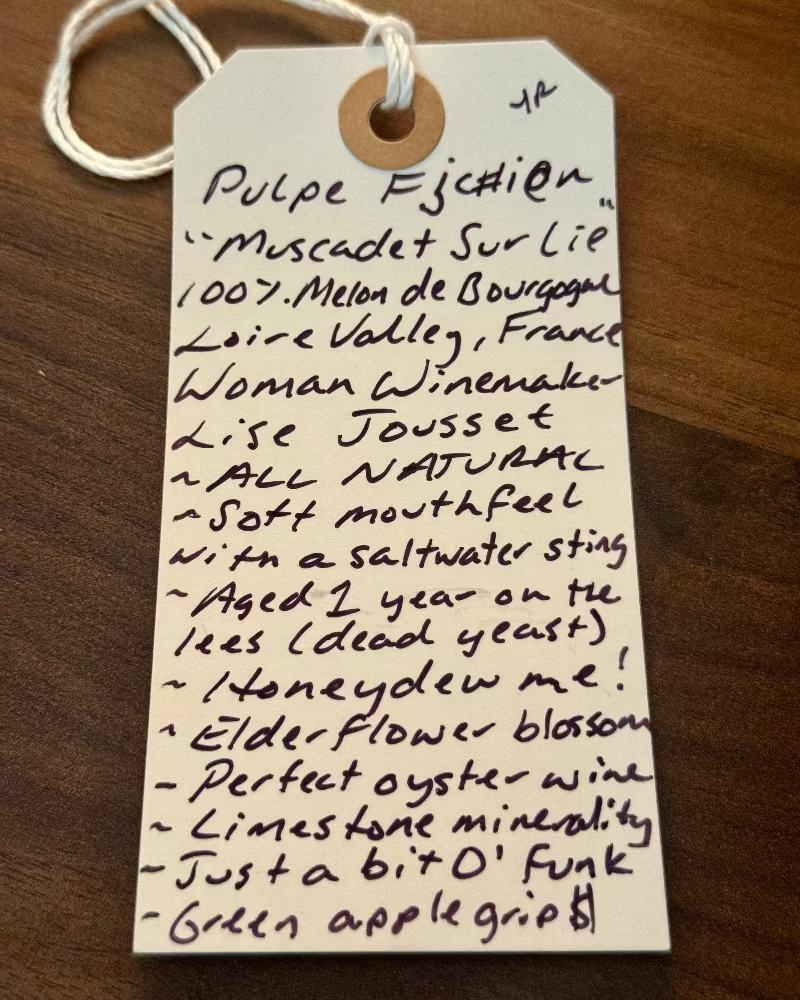 Pulpe Fjc#i@n
"Muscadet Sur Lie"
100%. Melon de Bourgogne
Loire Valley, France
Woman Winemaker
Lise Jousset
~ ALL NATURAL
~ Soft mouthfeel
with a saltwater sting
~ Aged 1 year on the
lees (dead yeast)
~ Honeydew me!
~ Elderflower blossom
- Perfect oyster wine
~ Limestone minerality
- Just a bit O' funk
- Green apple grip